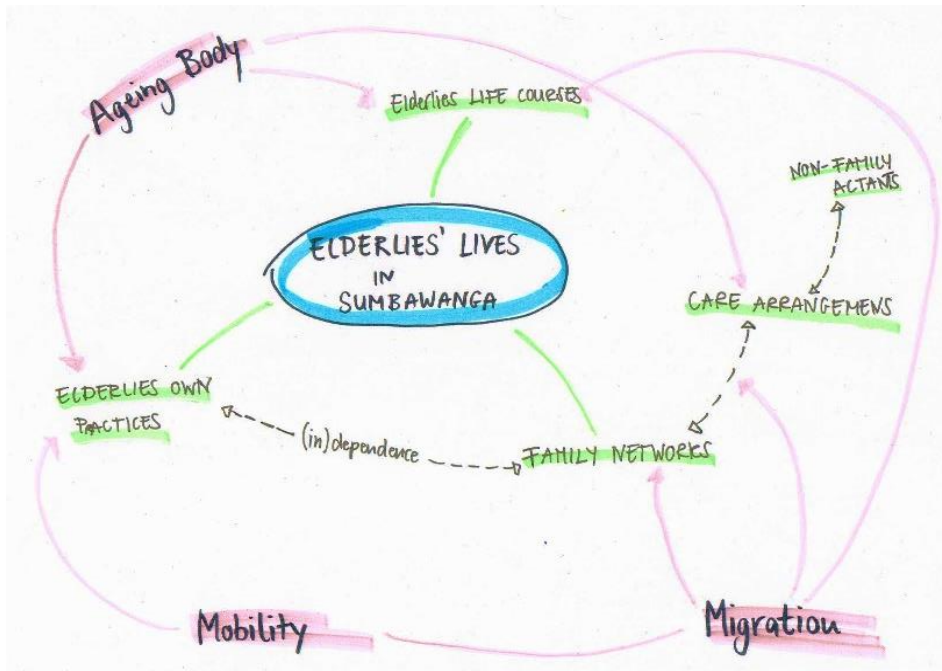 Ageing Body
Elderlies LIFE COURSES
NON-FAMILY
ACTANTS
ELDERLIES' LIVES
IN
SUMBAWANGA
CARE ARRANGEMENS
ELDERLIES OWN
PRACTICES
(in)dependence
FAMILY NETWORKS
Mobility
Migration